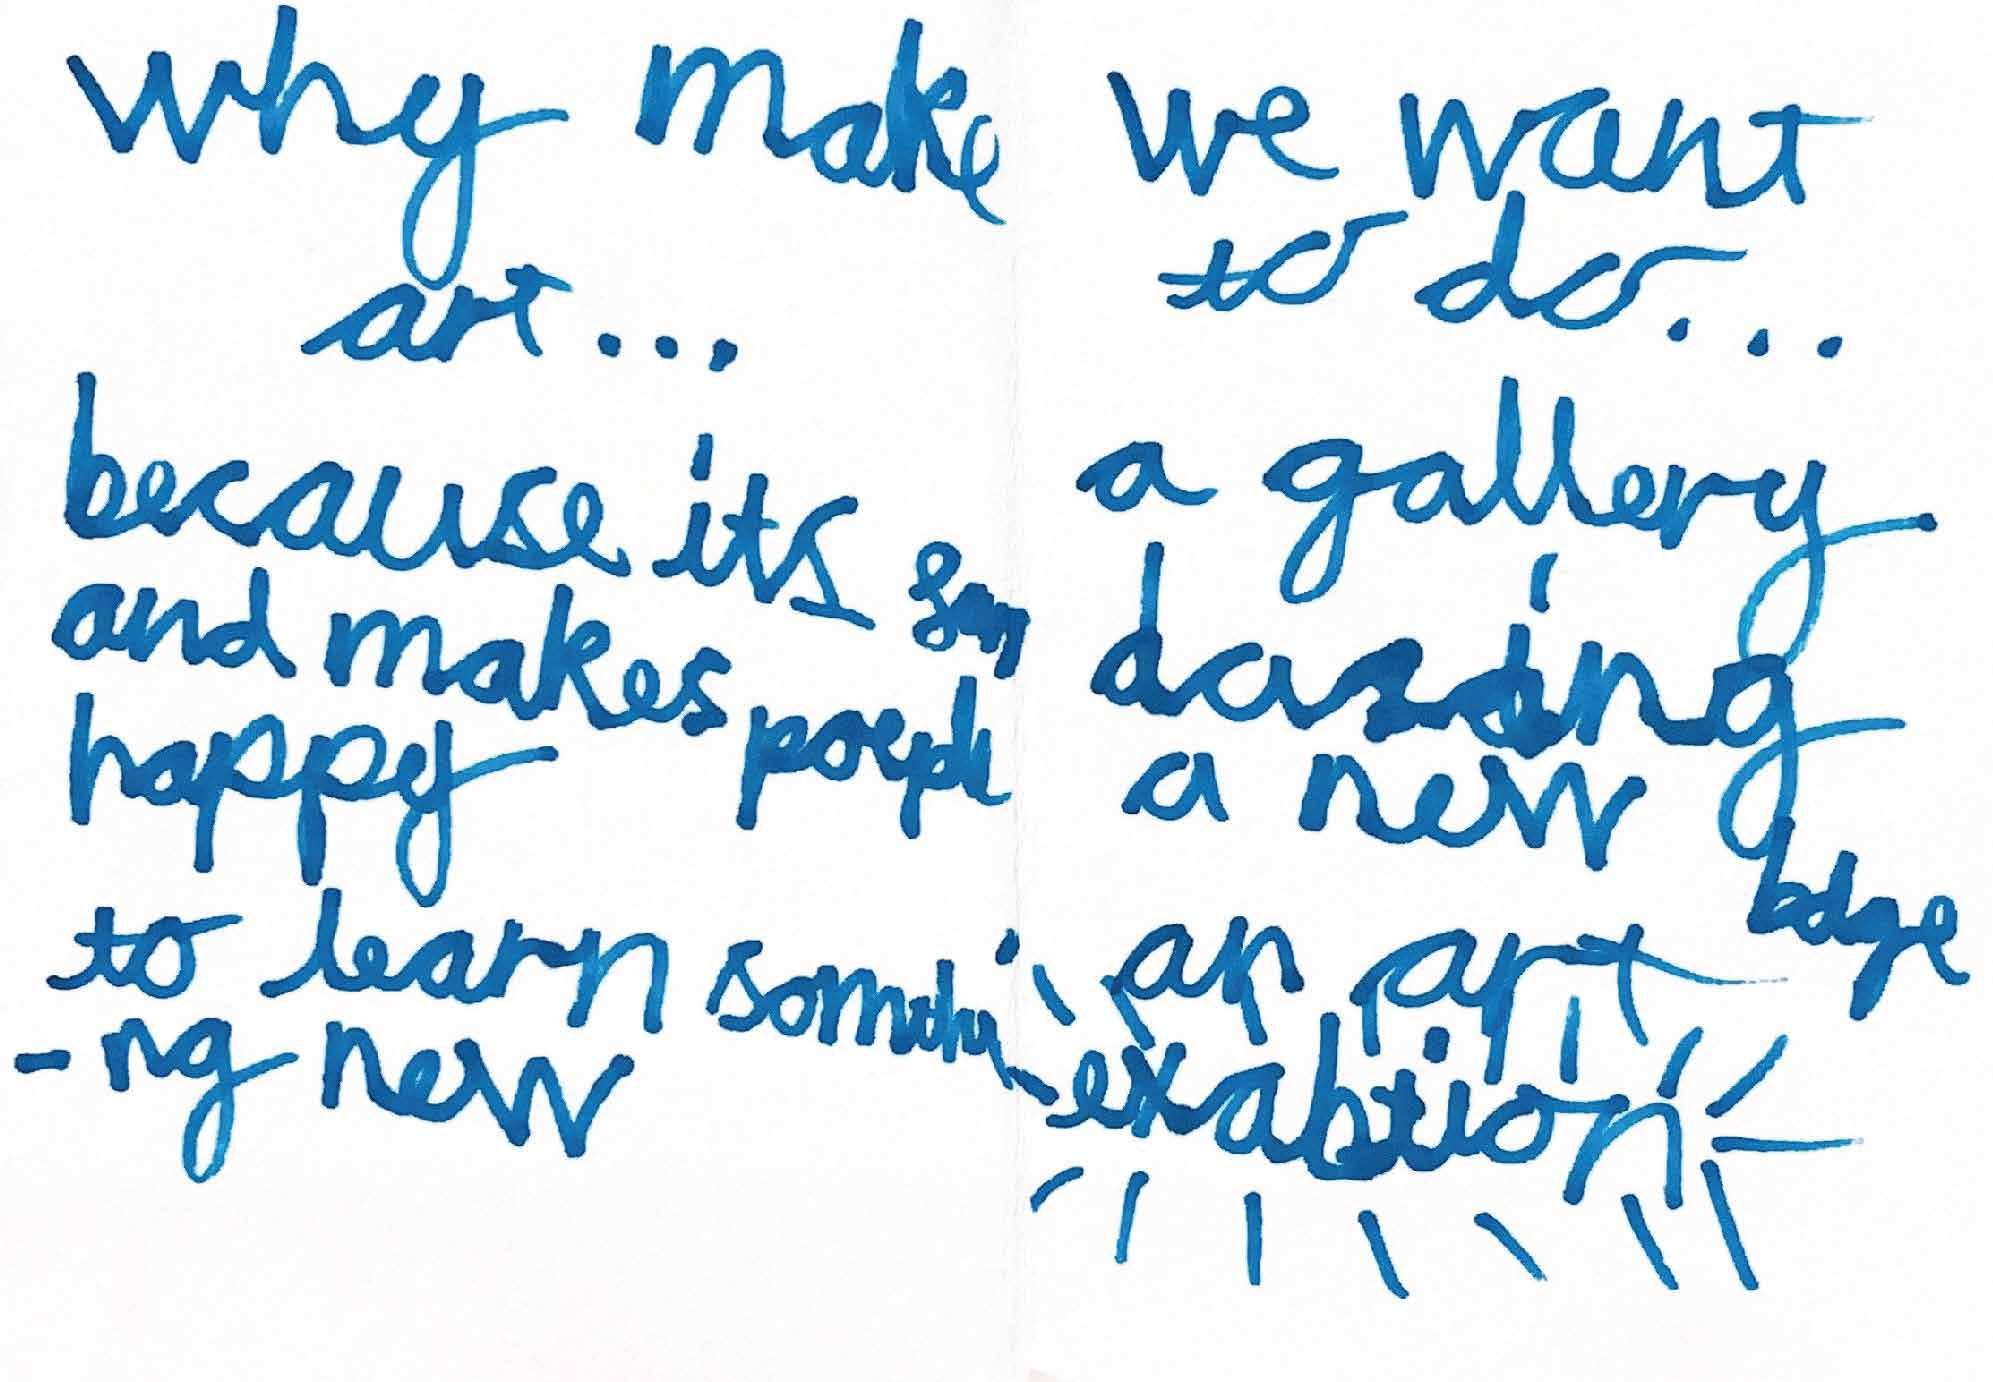 why make
art...
because its fun
and makes poeple
happy
to learn somethi
-ng new
we want
to do...
a gallery
dazing
a new badge
an art
exabtion